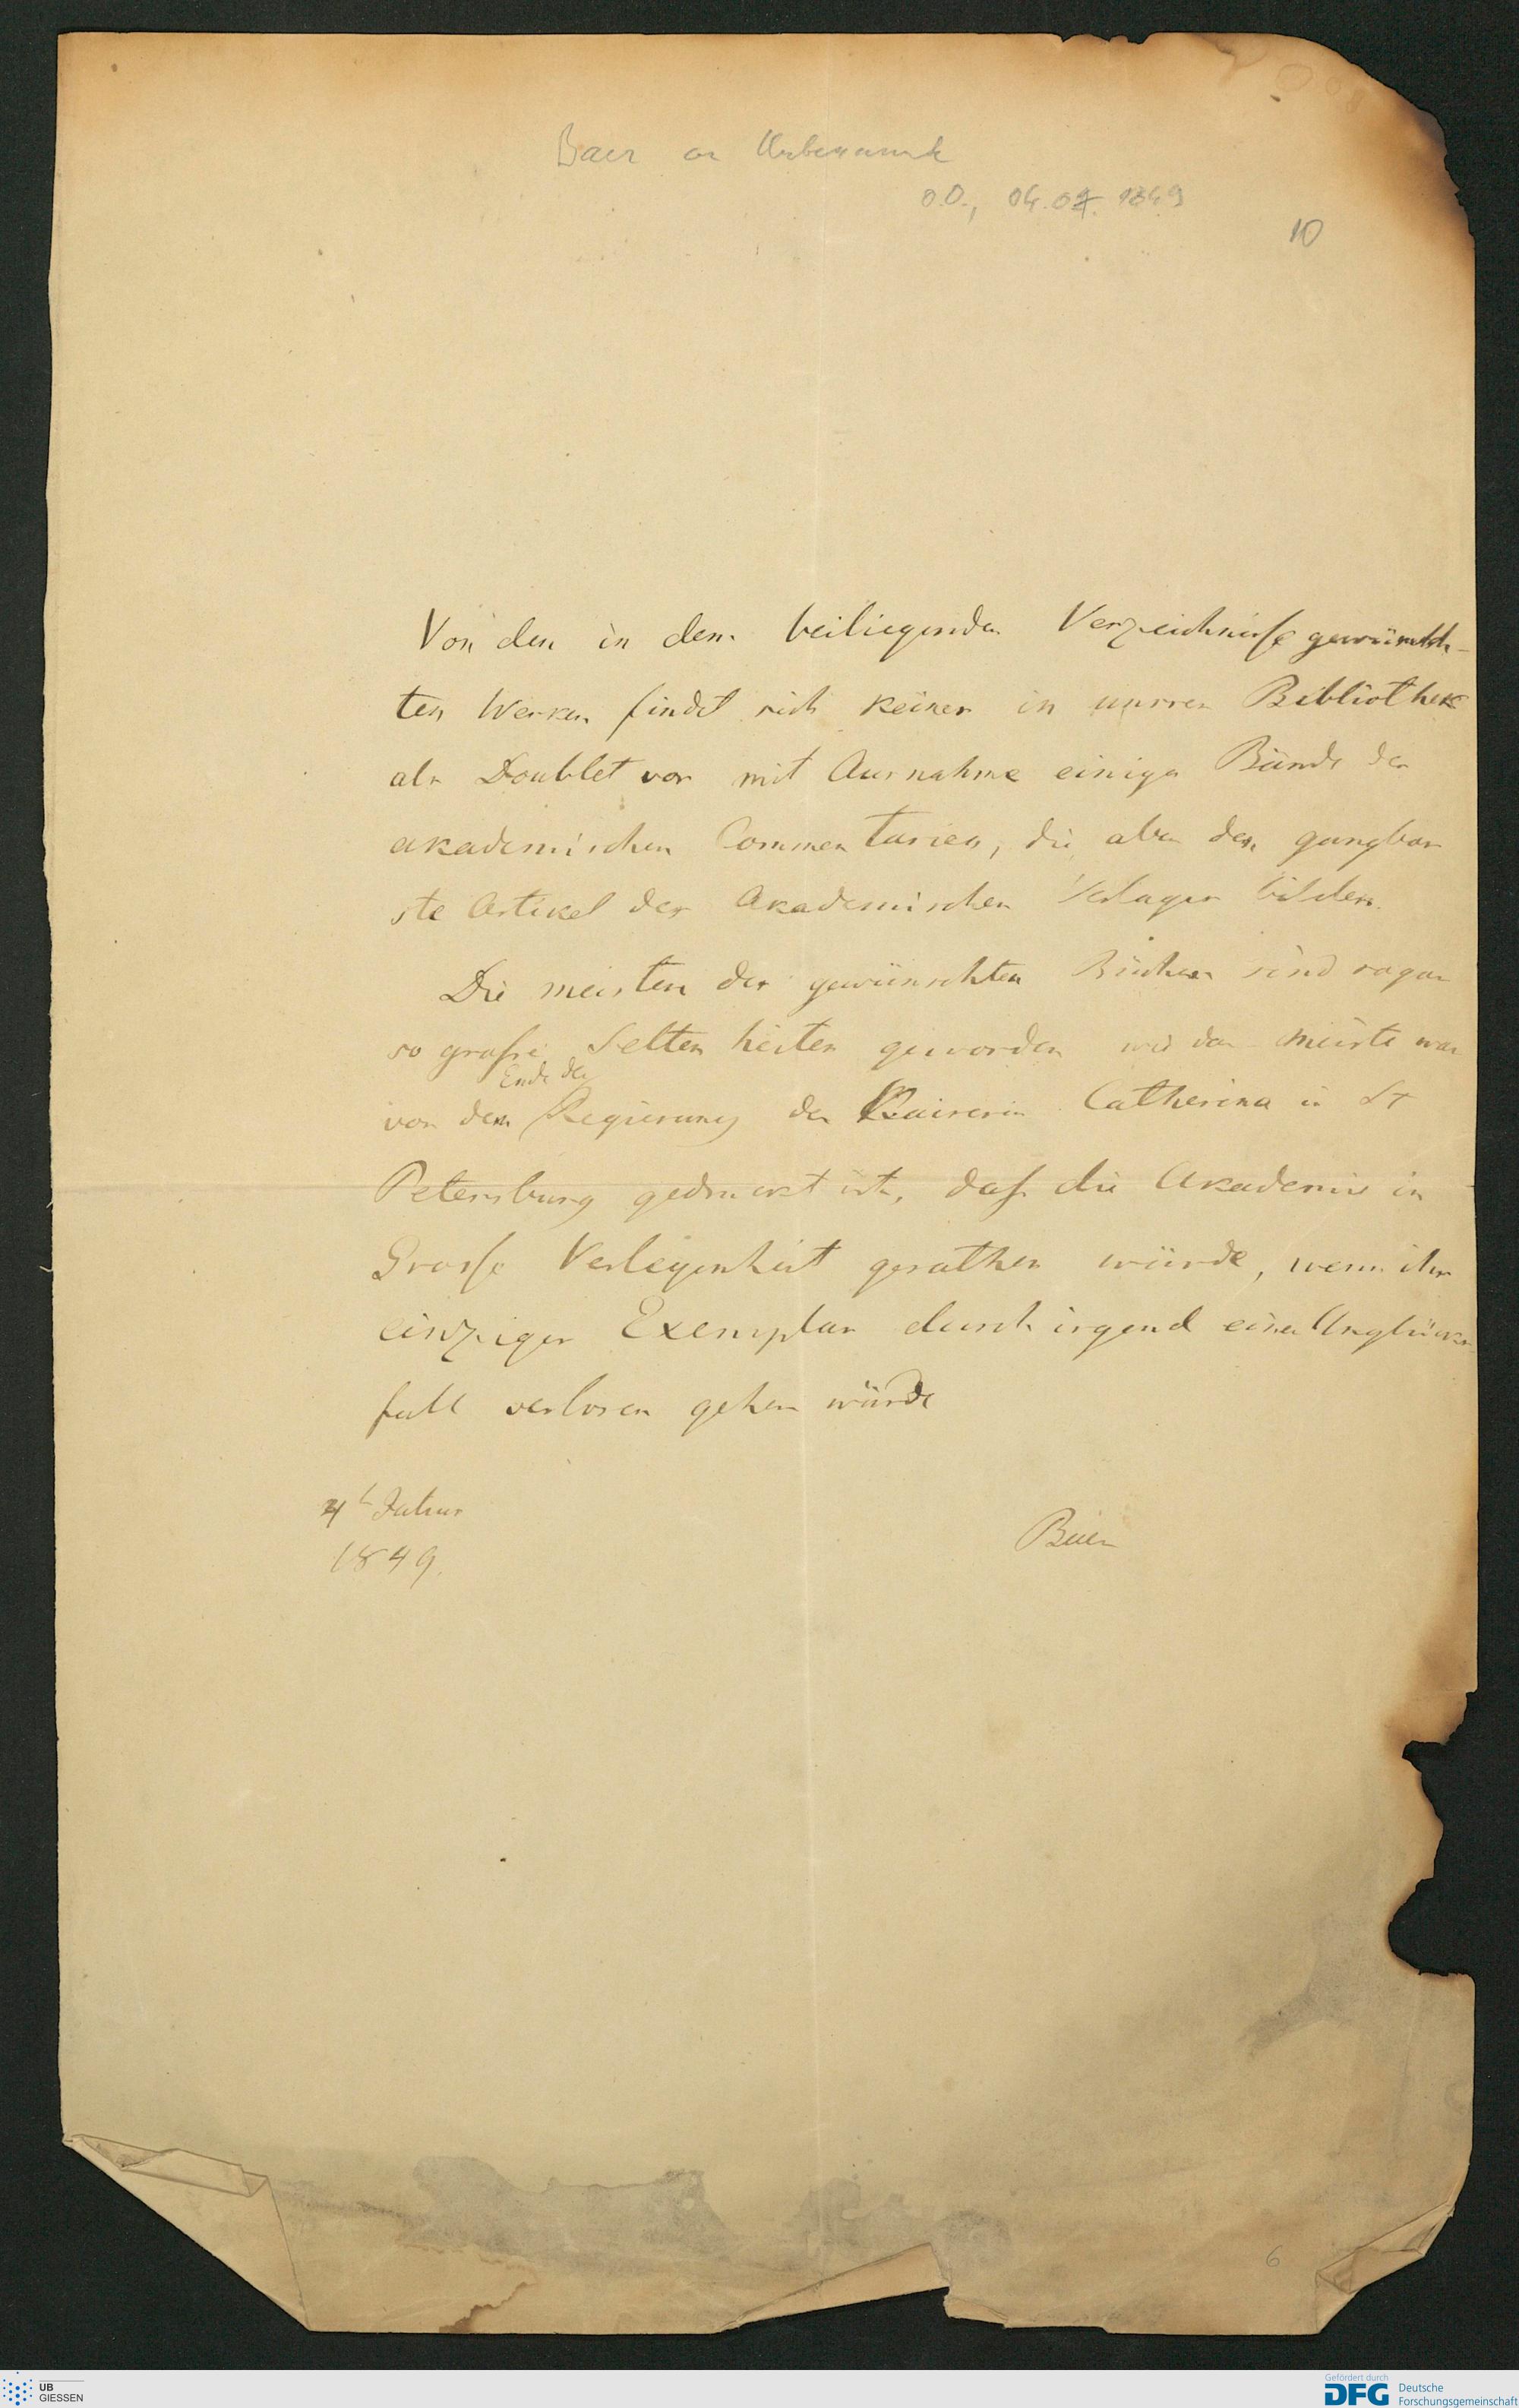 Baer an Unbekannt
o.O., 04.07.1849
10
Von den in dem beiliegenden Verzeichnisse gewünsch-
ten Werken findet sich keines in unsrer Bibliothek
als Doublet vor mit Ausnahme einiger Bände der
akademischen Commentarien, die aber den gangbar
ste Artikel des Akademischen Verlages bilden.
Die meisten der gewünschten Bücher sind sogar
so grosse Seltenheiten geworden wie das meiste was
Ende der
vor dem Regierung der Kaiserin Catherina in St
Petersburg gedruckt ist, dass die Akademie in
Grosse Verlegenheit gerathen würde, wenn ihr
einziges Exemplar durch irgend einen Unglücks
fall verloren gehen würde
4t
1849.
Baer
6
UB
GIESSEN
Gefördert durch
DFG Deutsche
Forschungsgemeinschaft